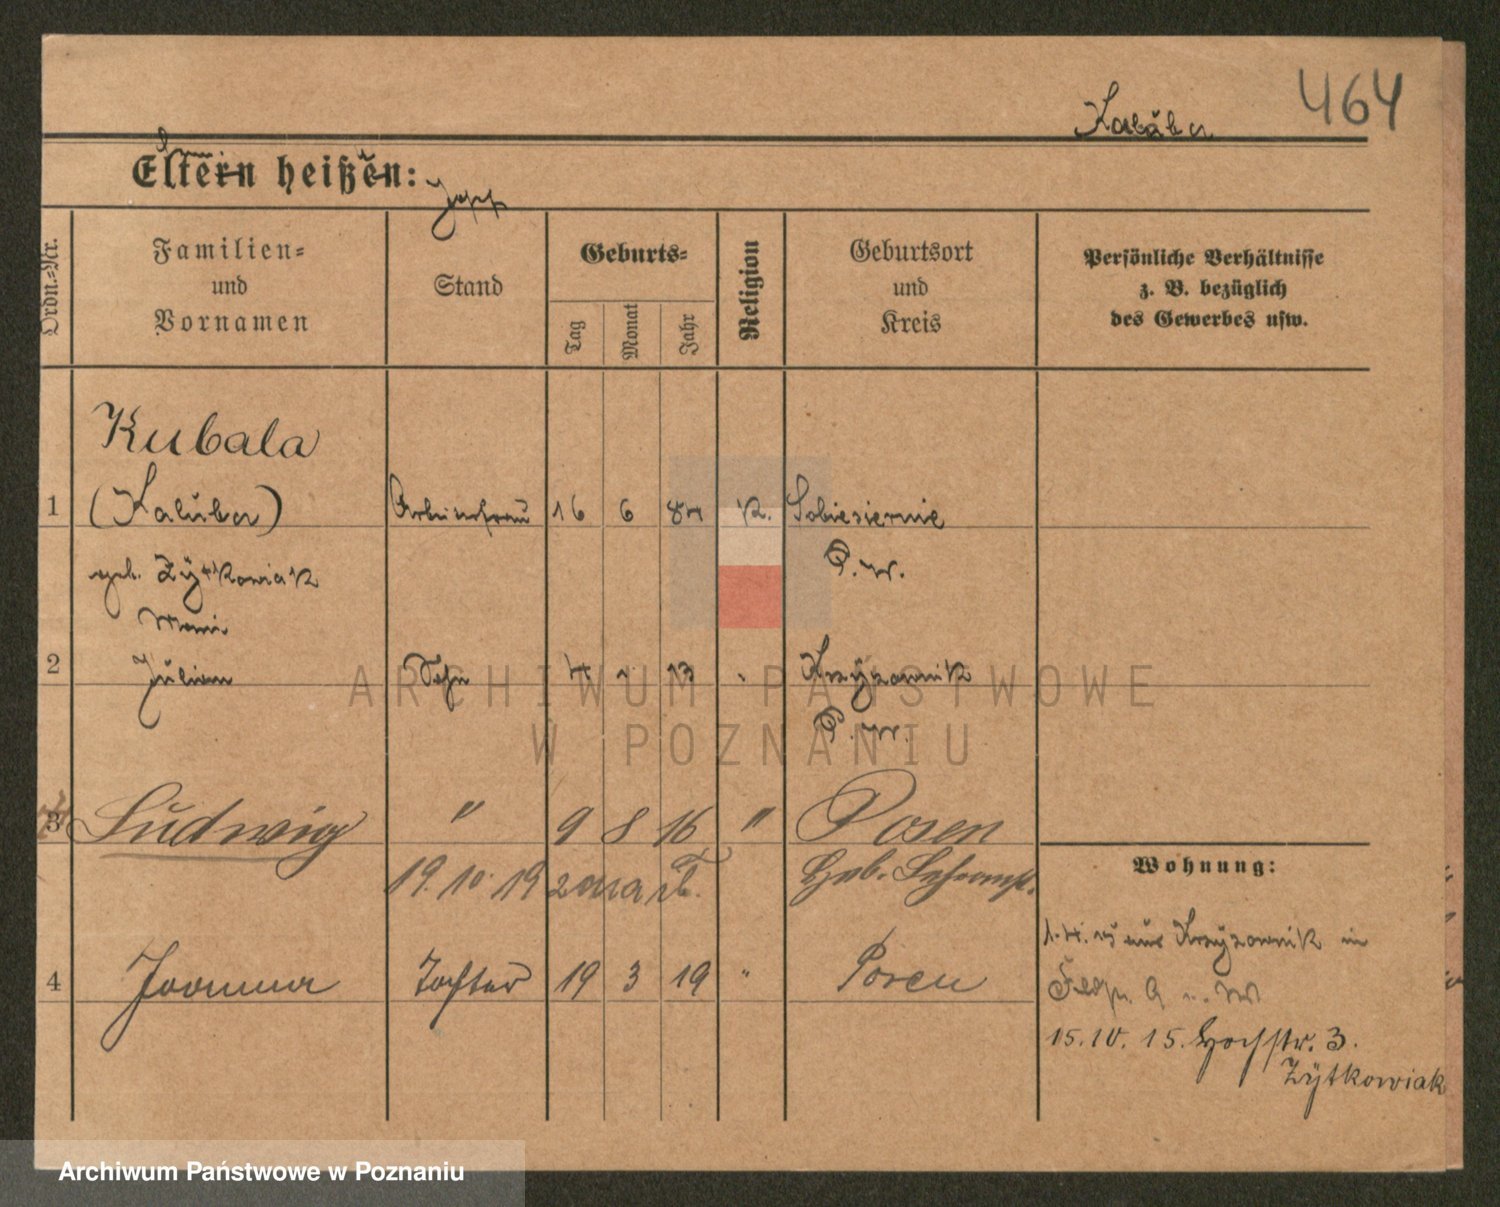 464
Kaluba
Eltern heißen:
Josef
Ordn.-Nr.
Familien-
und
Vornamen
Stand
Geburts-
Tag
Monat
Jahr
Religion
Geburtsort
und
Kreis
Persönliche Verhältnisse
z. B. bezüglich
des Gewerbes usw.
Kubala
1 (Kaluba) Arbeiterfrau 16 6 84 K. Sobiesiernie
geb. Zytkowiak P. W.
Marie
2 Julian Sohn 4 1 13 Krzyzownik
P. W.
3 Ludwig " 9 8 16 " Posen
Wohnung:
19. 10. 19
1. 4. 15 aus Krzyzownik in
4 Joanna Tochter 19 3 19 " Posen
15. 10. 15. Hochstr. 3.
Zytkowiak
ARCHIWUM PAŃSTWOWE
W POZNANIU
Archiwum Państwowe w Poznaniu